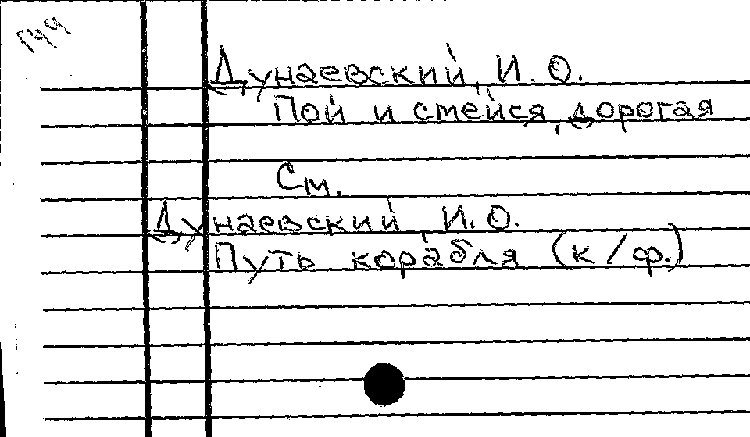 Дунаевский, И. О.
Пой и смейся, дорогая
См.
Дунаевский, И. О.
Путь корабля (к/ф.)